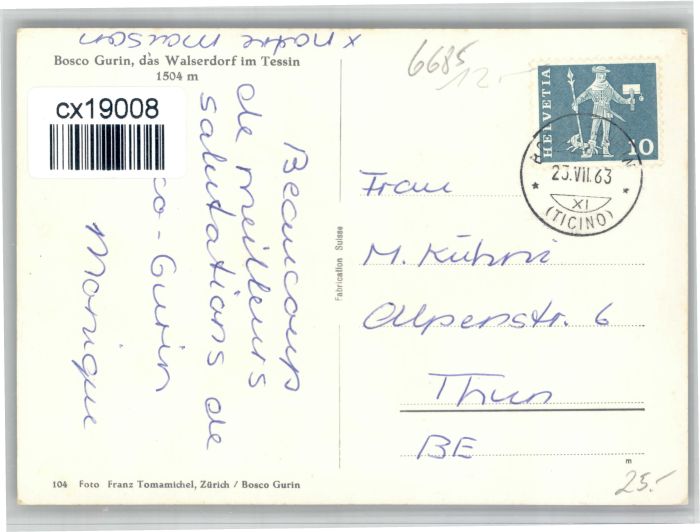 x notre maison
Bosco Gurin, das Walserdorf im Tessin
1504 m
cx19008
Beaucoup
de meilleurs
salutations de
co-Gurin
Monique
Fabrication Suisse
6685
12.-
HELVETIA
10
23.VII.63
XI
(TICINO)
Frau
M. Kühni
Alpenstr. 6
Thun
BE
m
25.-
104 Foto Franz Tomamichel, Zürich / Bosco Gurin